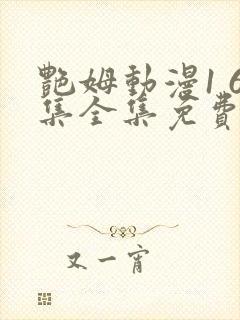 艷姆動漫1 6
集全集免費
又一宵